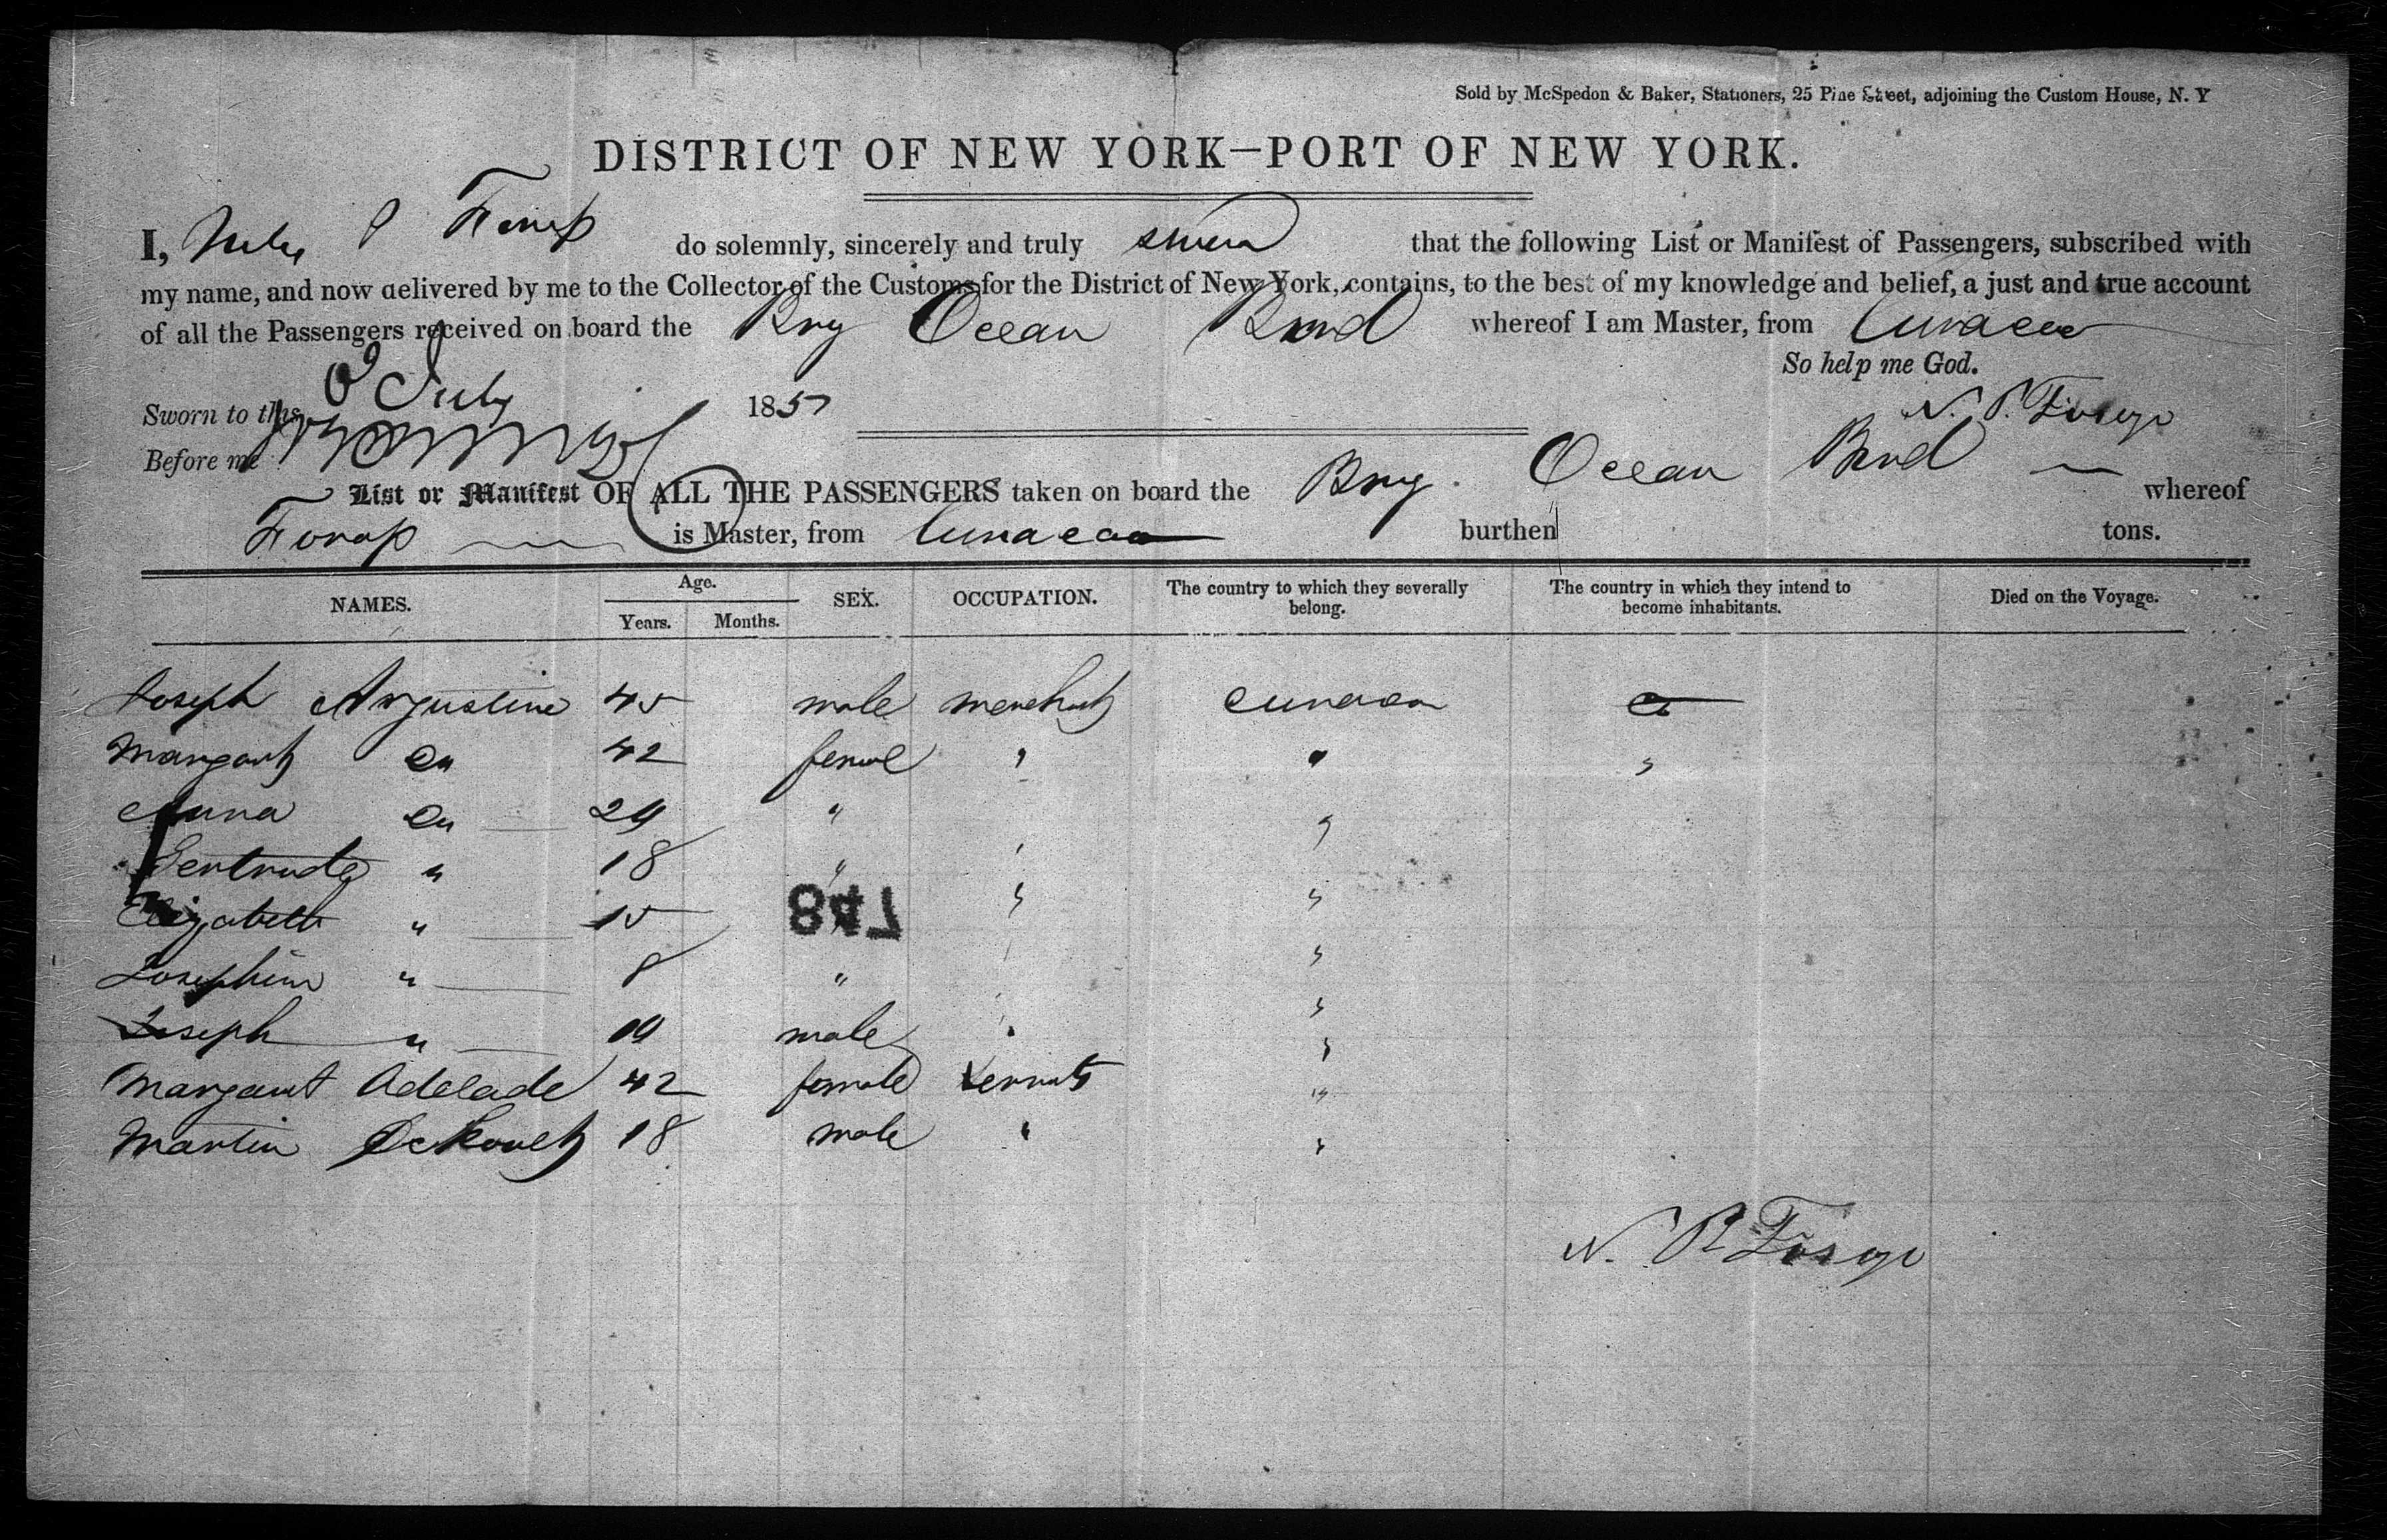 Sold by McSpedon & Baker, Stationers, 25 Pine Street, adjoining the Custom House, N. Y
DISTRICT OF NEW YORK—PORT OF NEW YORK.
I, P do solemnly, sincerely and truly swear that the following List or Manifest of Passengers, subscribed with
my name, and now delivered by me to the Collector of the Customs for the District of New York, contains, to the best of my knowledge and belief, a just and true account
of all the Passengers received on board the Brig Ocean Bird whereof I am Master, from Curacao
So help me God.
Sworn to this 8 July 1857
N. P.
Before me
List or Manifest OF ALL THE PASSENGERS taken on board the Brig Ocean Bird whereof
is Master, from Curacao burthen tons.
NAMES. Age. Years. Months. SEX. OCCUPATION. The country to which they severally belong. The country in which they intend to become inhabitants. Died on the Voyage.
Joseph Augustine 45 male merchant Curacao
Margart 42 female " " "
Anna 29 " "
Gertrude " 18 " " "
Elizabeth " 15 " "
Josephine " 8 " "
Joseph " 19 male " "
Margaret Adelade 42 female "
Martin 18 male " "
847
N. P.